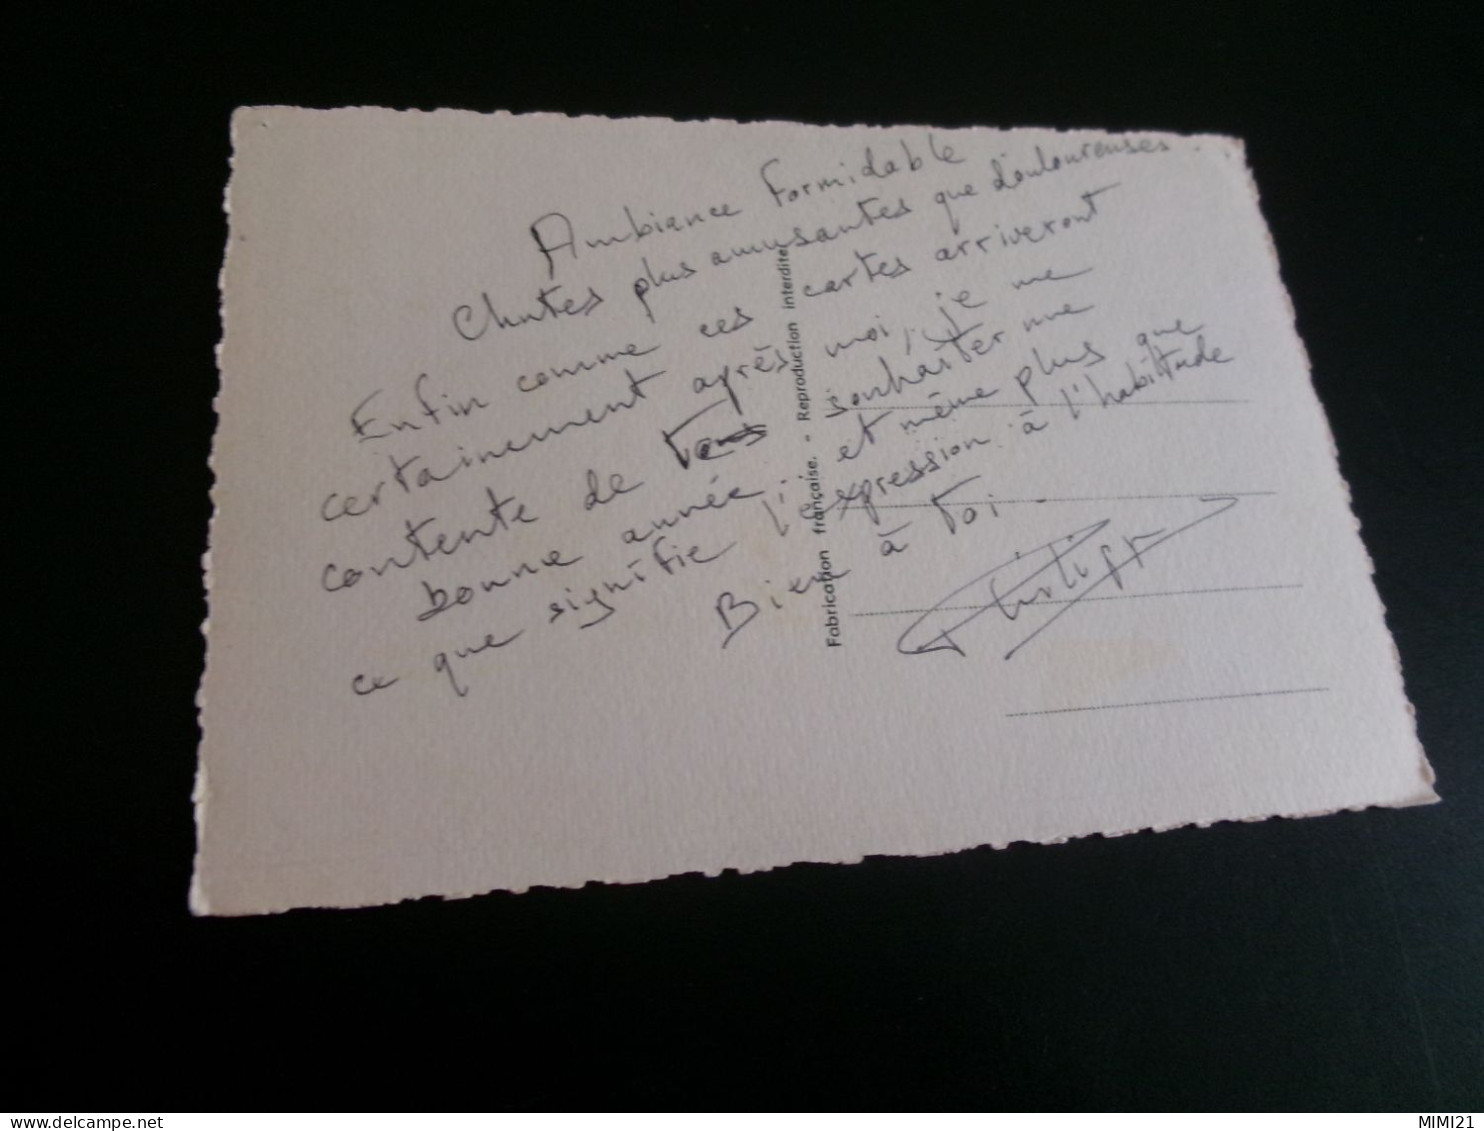 Ambiance formidable
Chutes plus amusantes que douloureuses.
Enfin comme ces cartes arriveront
certainement après moi, je me
contente de souhaiter une
bonne année et même plus que
ce que signifie l'expression à l'habitude
Bien à toi.
Philippe
Fabrication française. - Reproduction interdite
MIMI21